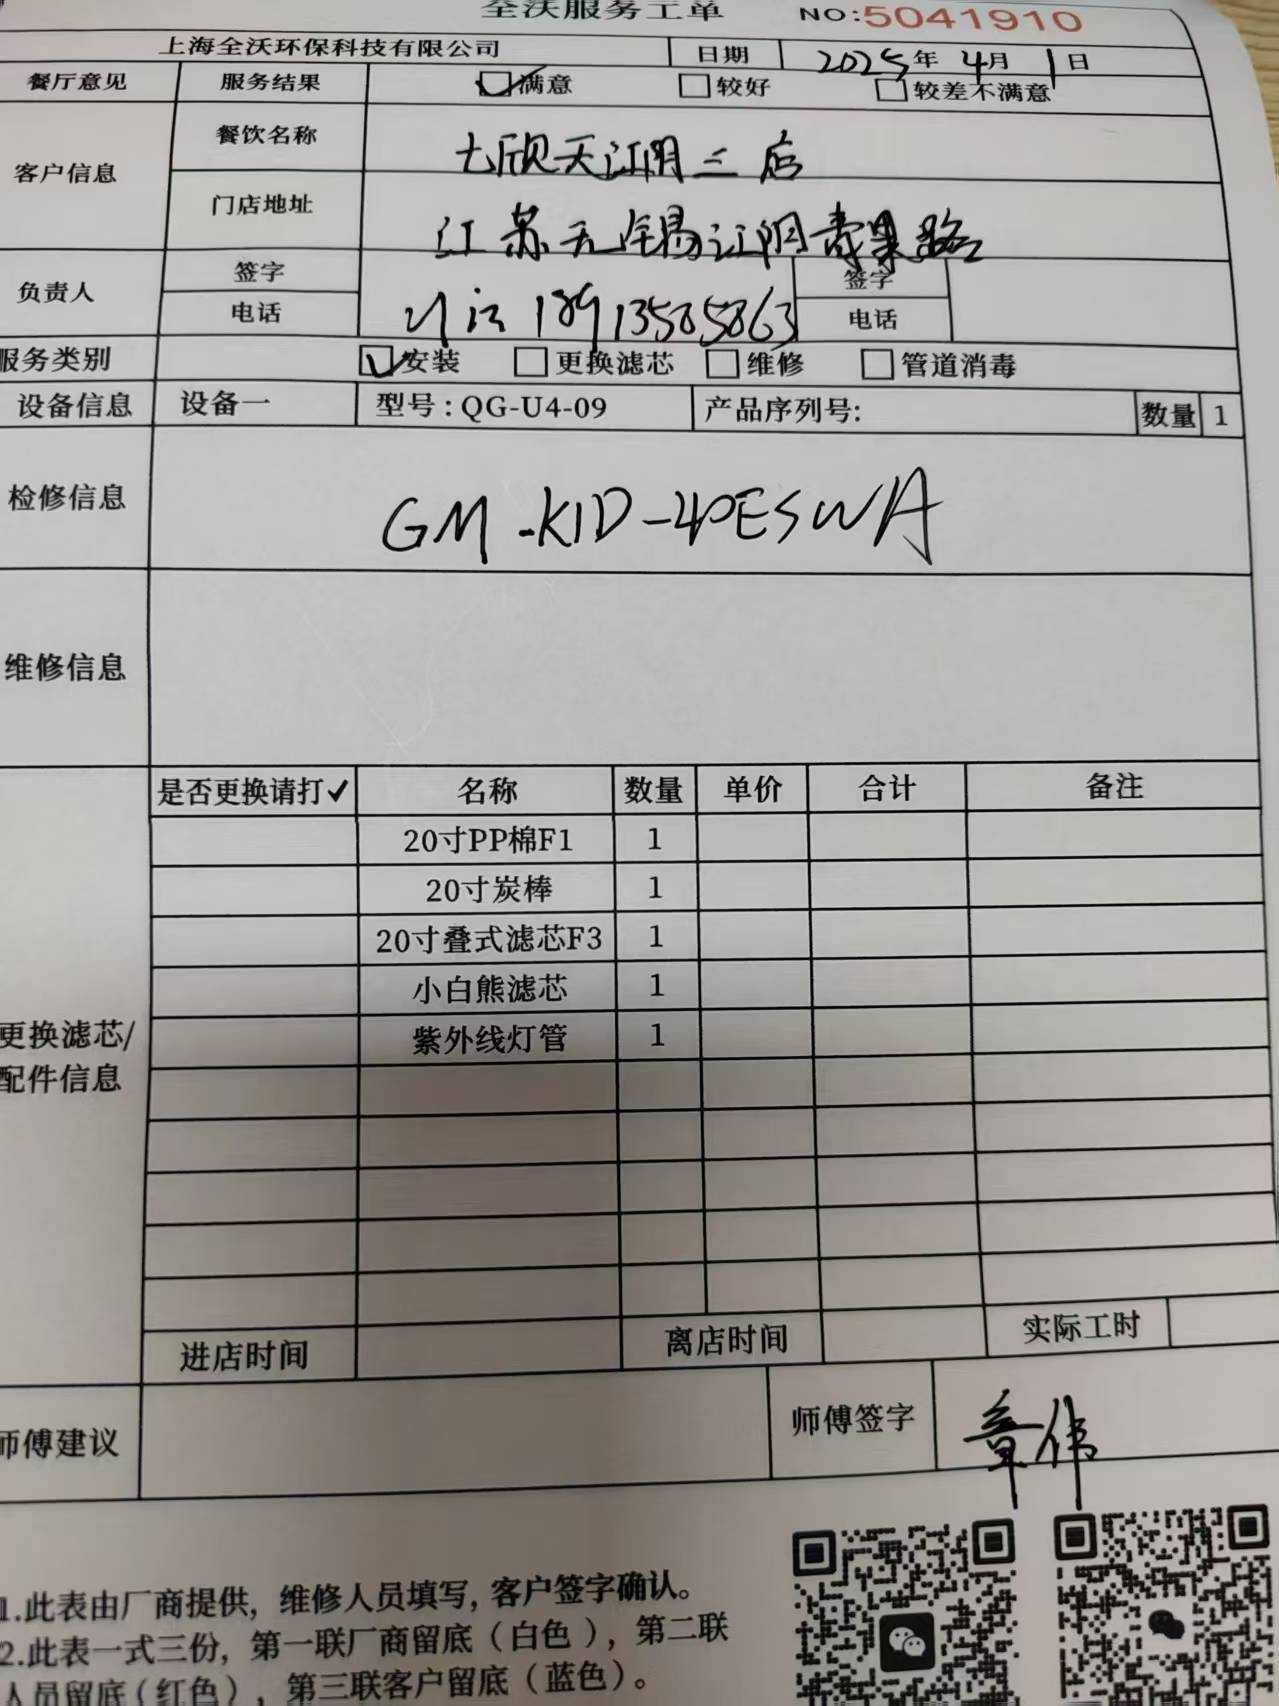 全沃服务工单 NO:5041910
上海全沃环保科技有限公司 日期 2025年 4月 1日
餐厅意见 服务结果 满意 较好 较差不满意
客户信息 餐饮名称 七欣天江阴三店
门店地址 江苏无锡江阴青果路
负责人 签字 签字
电话 18913585863 电话
服务类别 安装 更换滤芯 维修 管道消毒
设备信息 设备一 型号:QG-U4-09 产品序列号: 数量 1
检修信息 GM-KID-40ESWA
维修信息
是否更换请打✓ 名称 数量 单价 合计 备注
20寸PP棉F1 1
20寸炭棒 1
20寸叠式滤芯F3 1
小白熊滤芯 1
紫外线灯管 1
更换滤芯/
配件信息
进店时间 离店时间 实际工时
师傅建议 师傅签字 章伟
1.此表由厂商提供,维修人员填写,客户签字确认。
2.此表一式三份,第一联厂商留底(白色),第二联
人员留底(红色),第三联客户留底(蓝色)。